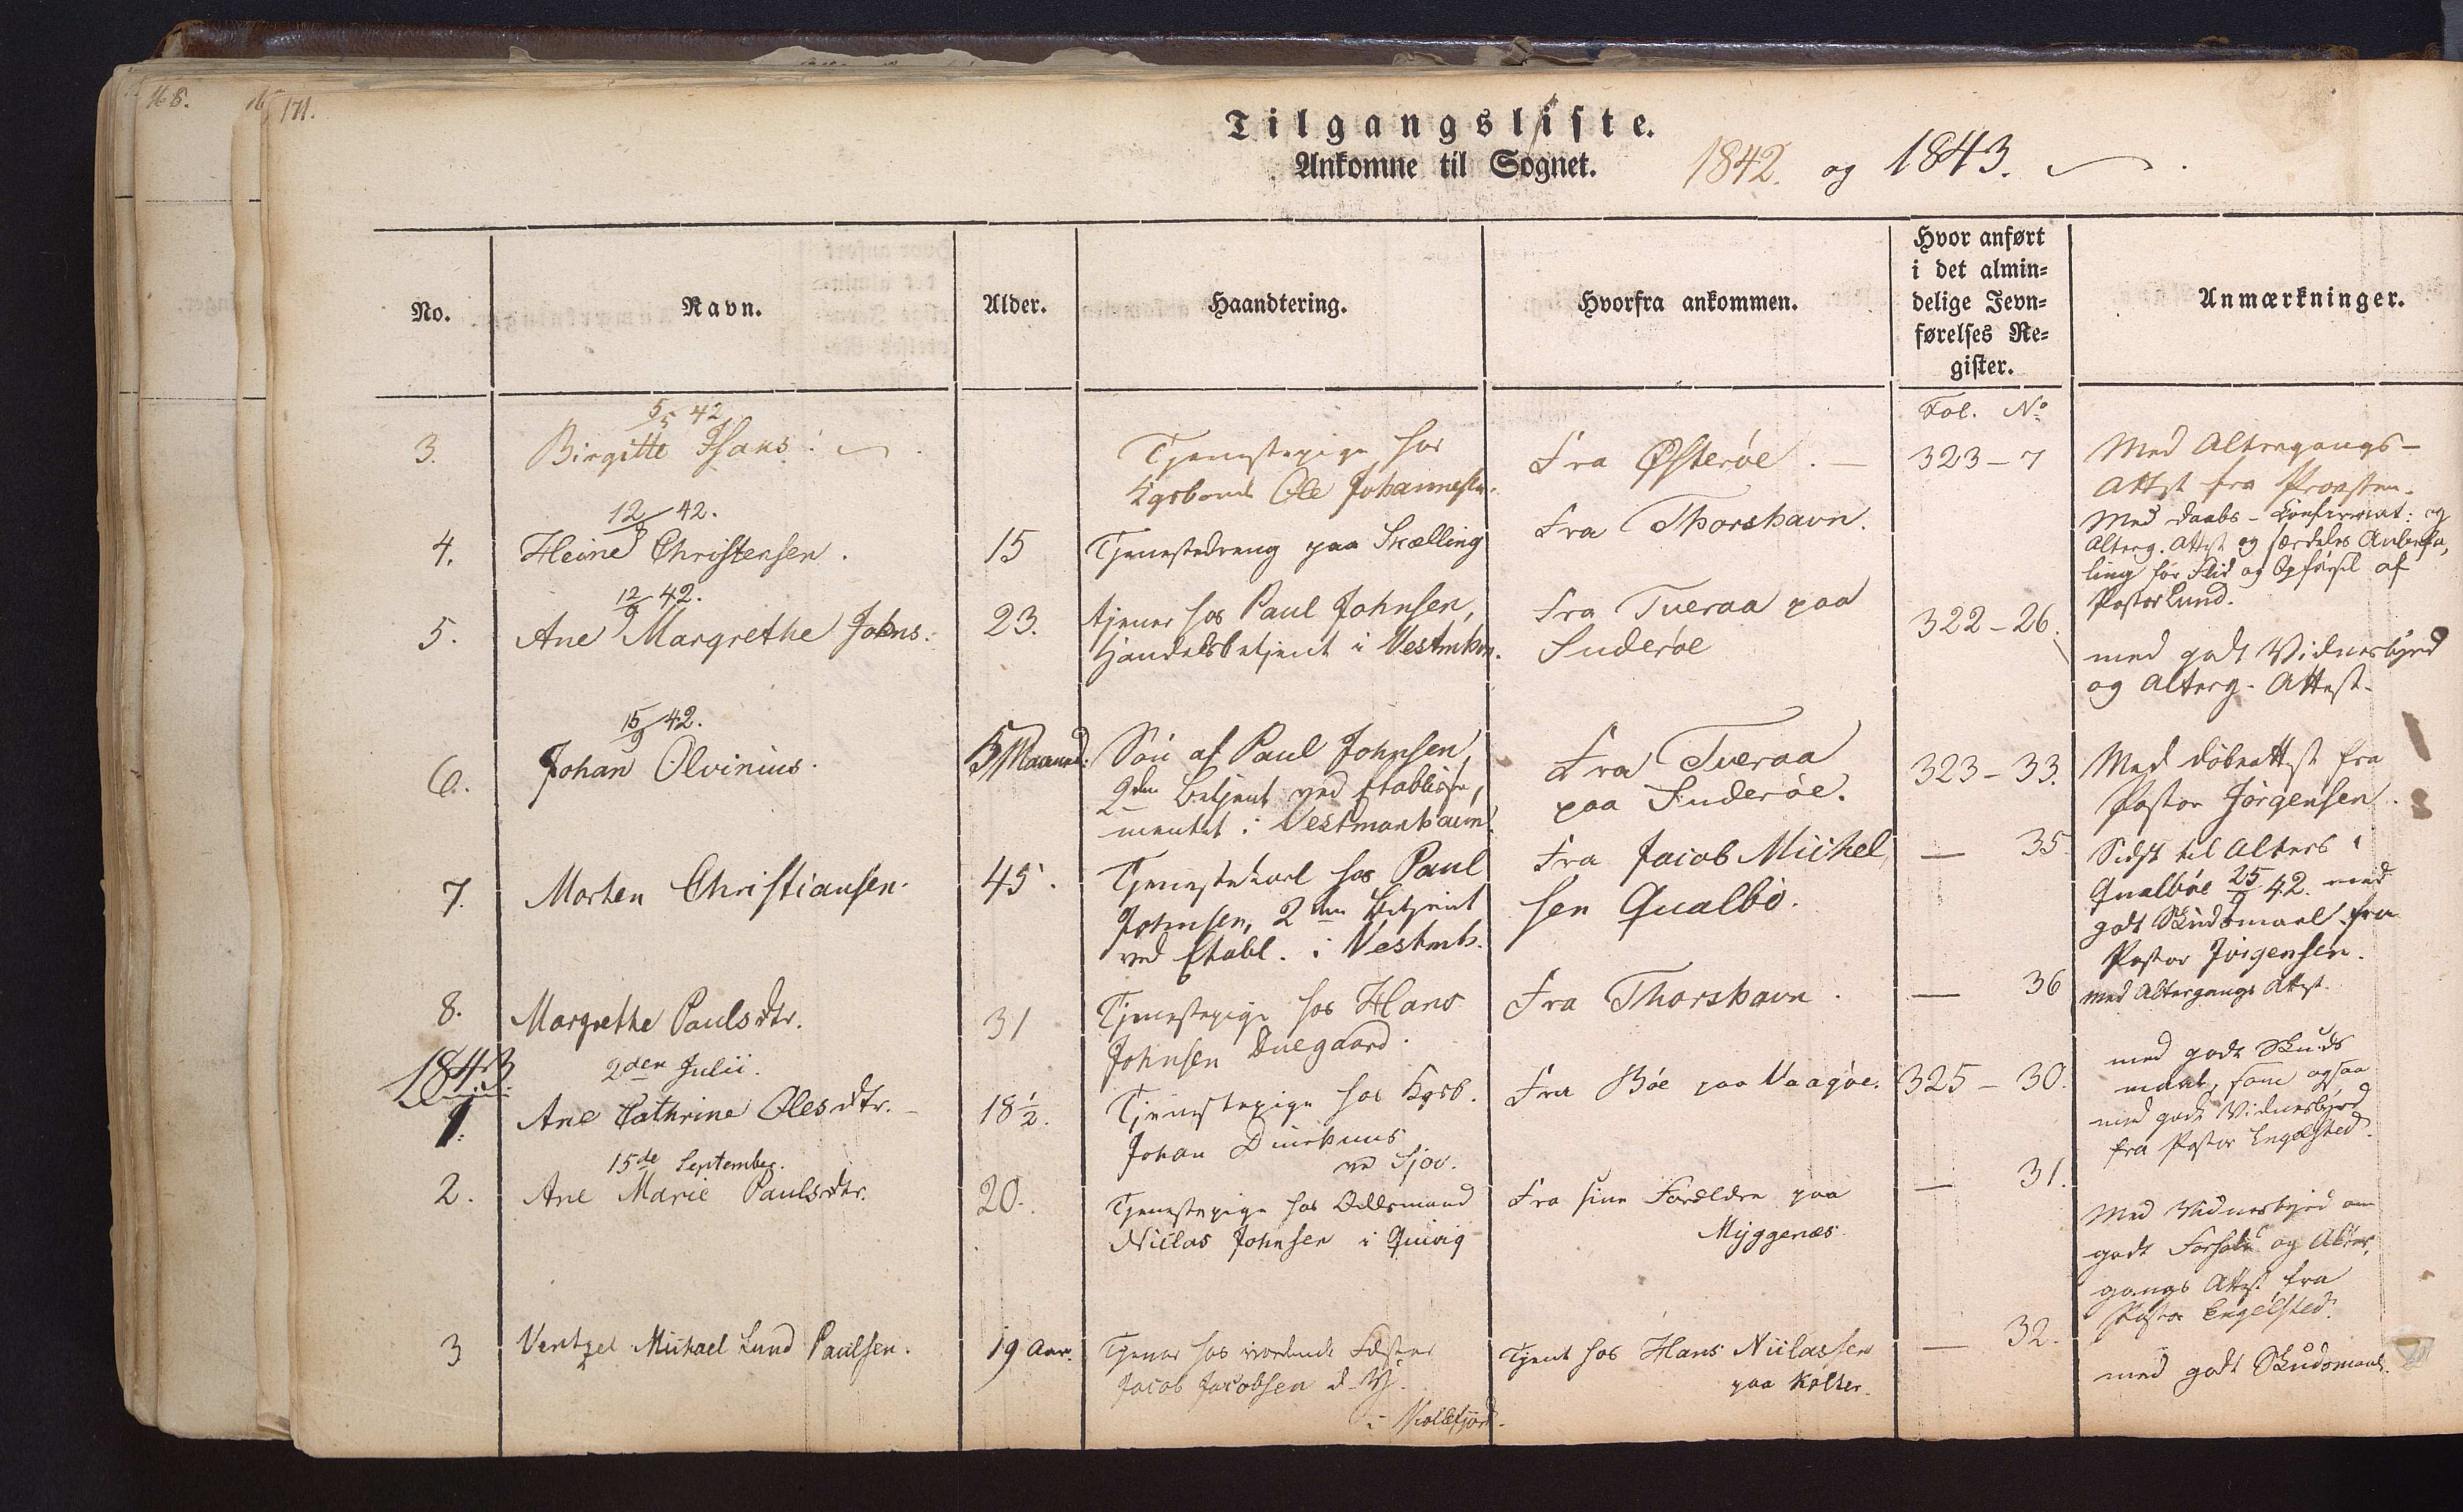 168.
171.
Tilgangsliste.
Ankomne til Sognet. 1842. og 1843.
No.
Navn.
Alder.
Haandtering.
Hvorfra ankommen.
Hvor anført
i det almin-
delige Jevn-
førelses Re-
gister.
Anmærkninger.
Fol. No
5/5 42
3.
Birgitte Hans:
Tjenestepige hos
Kgsbond Ole Johannesen.
Fra Østerøe.
323-7
Med Altergangs-
Attest fra Provsten.
12/8 42.
4.
Heine Christensen.
15
Tjenestedreng paa Skælling
Fra Thorshavn.
Med Daabs- Confirmat: og
Alterg. Attest og særdeles Anbefa,
ling for Flid og Opførsel af
Pastor Lund.
12/9 42.
5.
Ane Margrethe Johns:
23.
tjener hos Paul Johnsen,
Handelsbetjent i Vestmhvn.
Fra Tveraa paa
Suderøe
322-26.
med godt Vidnesbyrd
og Alterg. Attest.
15/9 42.
6.
Johan Olvinius.
5 Maaned:
Søn af Paul Johnsen,
2den Betjent ved Etablisse,
mentet i Vestmanhavn.
Fra Tveraa
paa Suderøe.
323-33.
Med Døbeattest fra
Pastor Jørgensen.
7.
Morten Christiansen.
45.
Tjenestekarl hos Paul
Johnsen, 2den Betjent
ved Etabl. i Vestmh.
Fra Jacob Michel,
sen Qualbø.
— 35
Sidst til Alters i
Qualbøe 25/9 42. med
godt Skudsmaal fra
Pastor Jørgensen.
8.
Margrethe Paulsdtr.
31
Tjenestepige hos Hans
Johnsen Duegaard.
Fra Thorshavn.
— 36
med Altergangs Attest.
1843.
2den Julii.
1.
Ane Cathrine Olesdtr.
18½.
Tjenestepige hos Kgsb.
Johan
ved Sjov.
Fra Bøe paa Vaagøe.
325-30.
med godt Skuds
maal, som ogsaa
med godt Vidnesbyrd
fra Pastor Engelsted.
15de September.
2.
Ane Marie Paulsdtr.
20.
Tjenestepige hos Odelsmand
Niclas Johnsen i Quivig
Fra sine Forældre paa
Myggenæs.
— 31.
Med Vidnesbyrd om
godt Forhold og Alter,
gangs Attest fra
Pastor Engelsted.
3
Ventzel Michael Lund Paulsen.
19 Aar.
Tjener hos vordende Fæster
Jacob Jacobsen d.Y.
i Kollefjord.
Tjent hos Hans Niclassen
paa Kolter.
— 32.
med godt Skudsmaal.